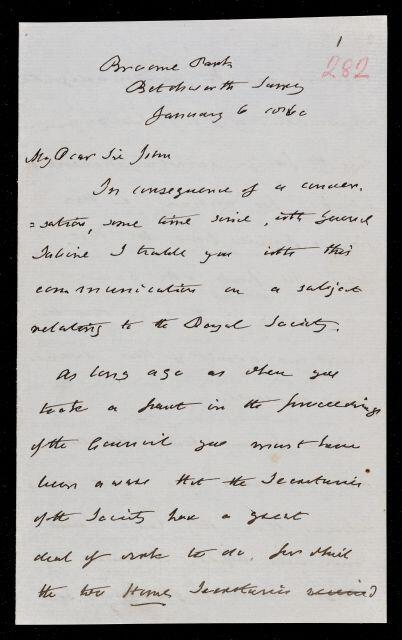 1
282
Broome Park
Betchworth Surrey
January 6 1860
My Dear Sir John
In consequence of a conver
=sation, some time since, with General
Sabine I trouble you with this
communication on a subject
relating to the Royal Society.
As long ago as when you
took a part in the proceedings
of the Council you must have
been aware that the Secretaries
of the Society have a great
deal of work to do, for which
the two Home Secretaries received